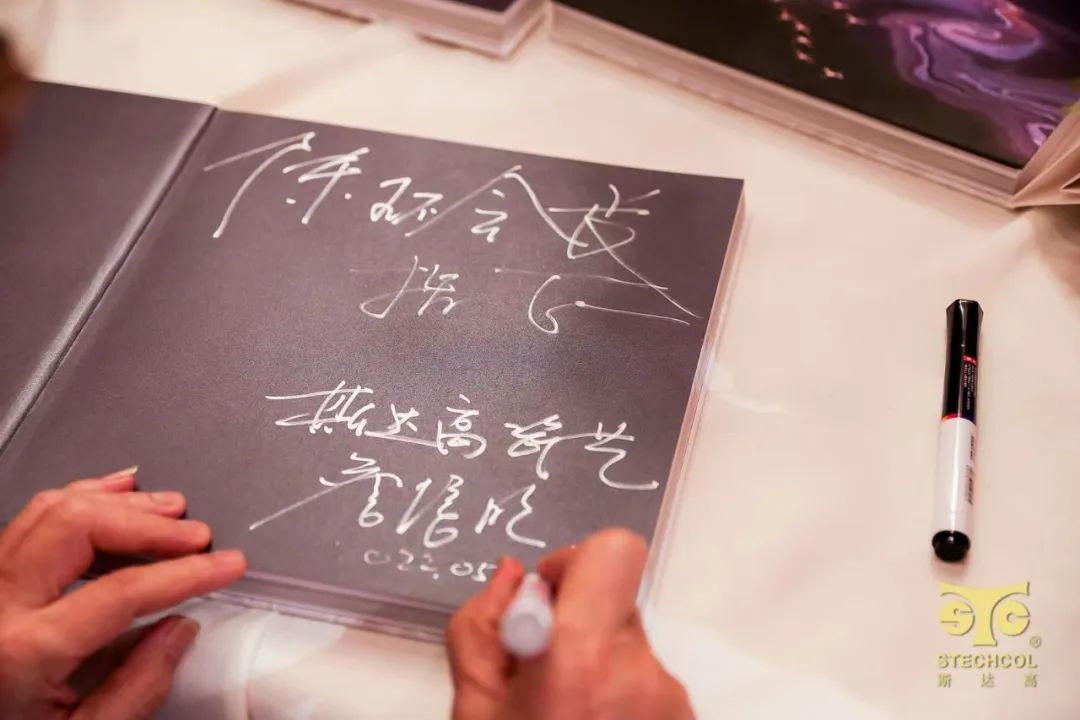 陈砺会长
指正
斯达高瓷艺
詹培明
022.05
STG®
STECHCOL
斯达高